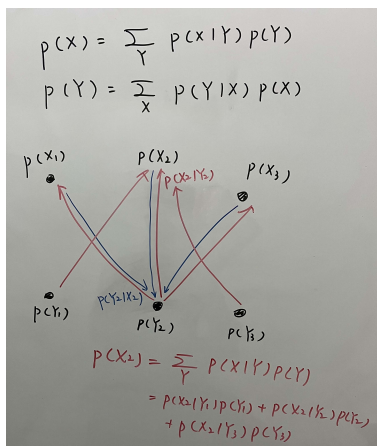 p(X) = Σ_Y p(X|Y) p(Y)
p(Y) = Σ_X p(Y|X) p(X)
p(X₁) p(X₂) p(X₃)
p(X₂|Y₂)
p(Y₂|X₂)
p(Y₁) p(Y₂) p(Y₃)
p(X₂) = Σ_Y p(X|Y) p(Y)
= p(X₂|Y₁) p(Y₁) + p(X₂|Y₂) p(Y₂)
+ p(X₂|Y₃) p(Y₃)